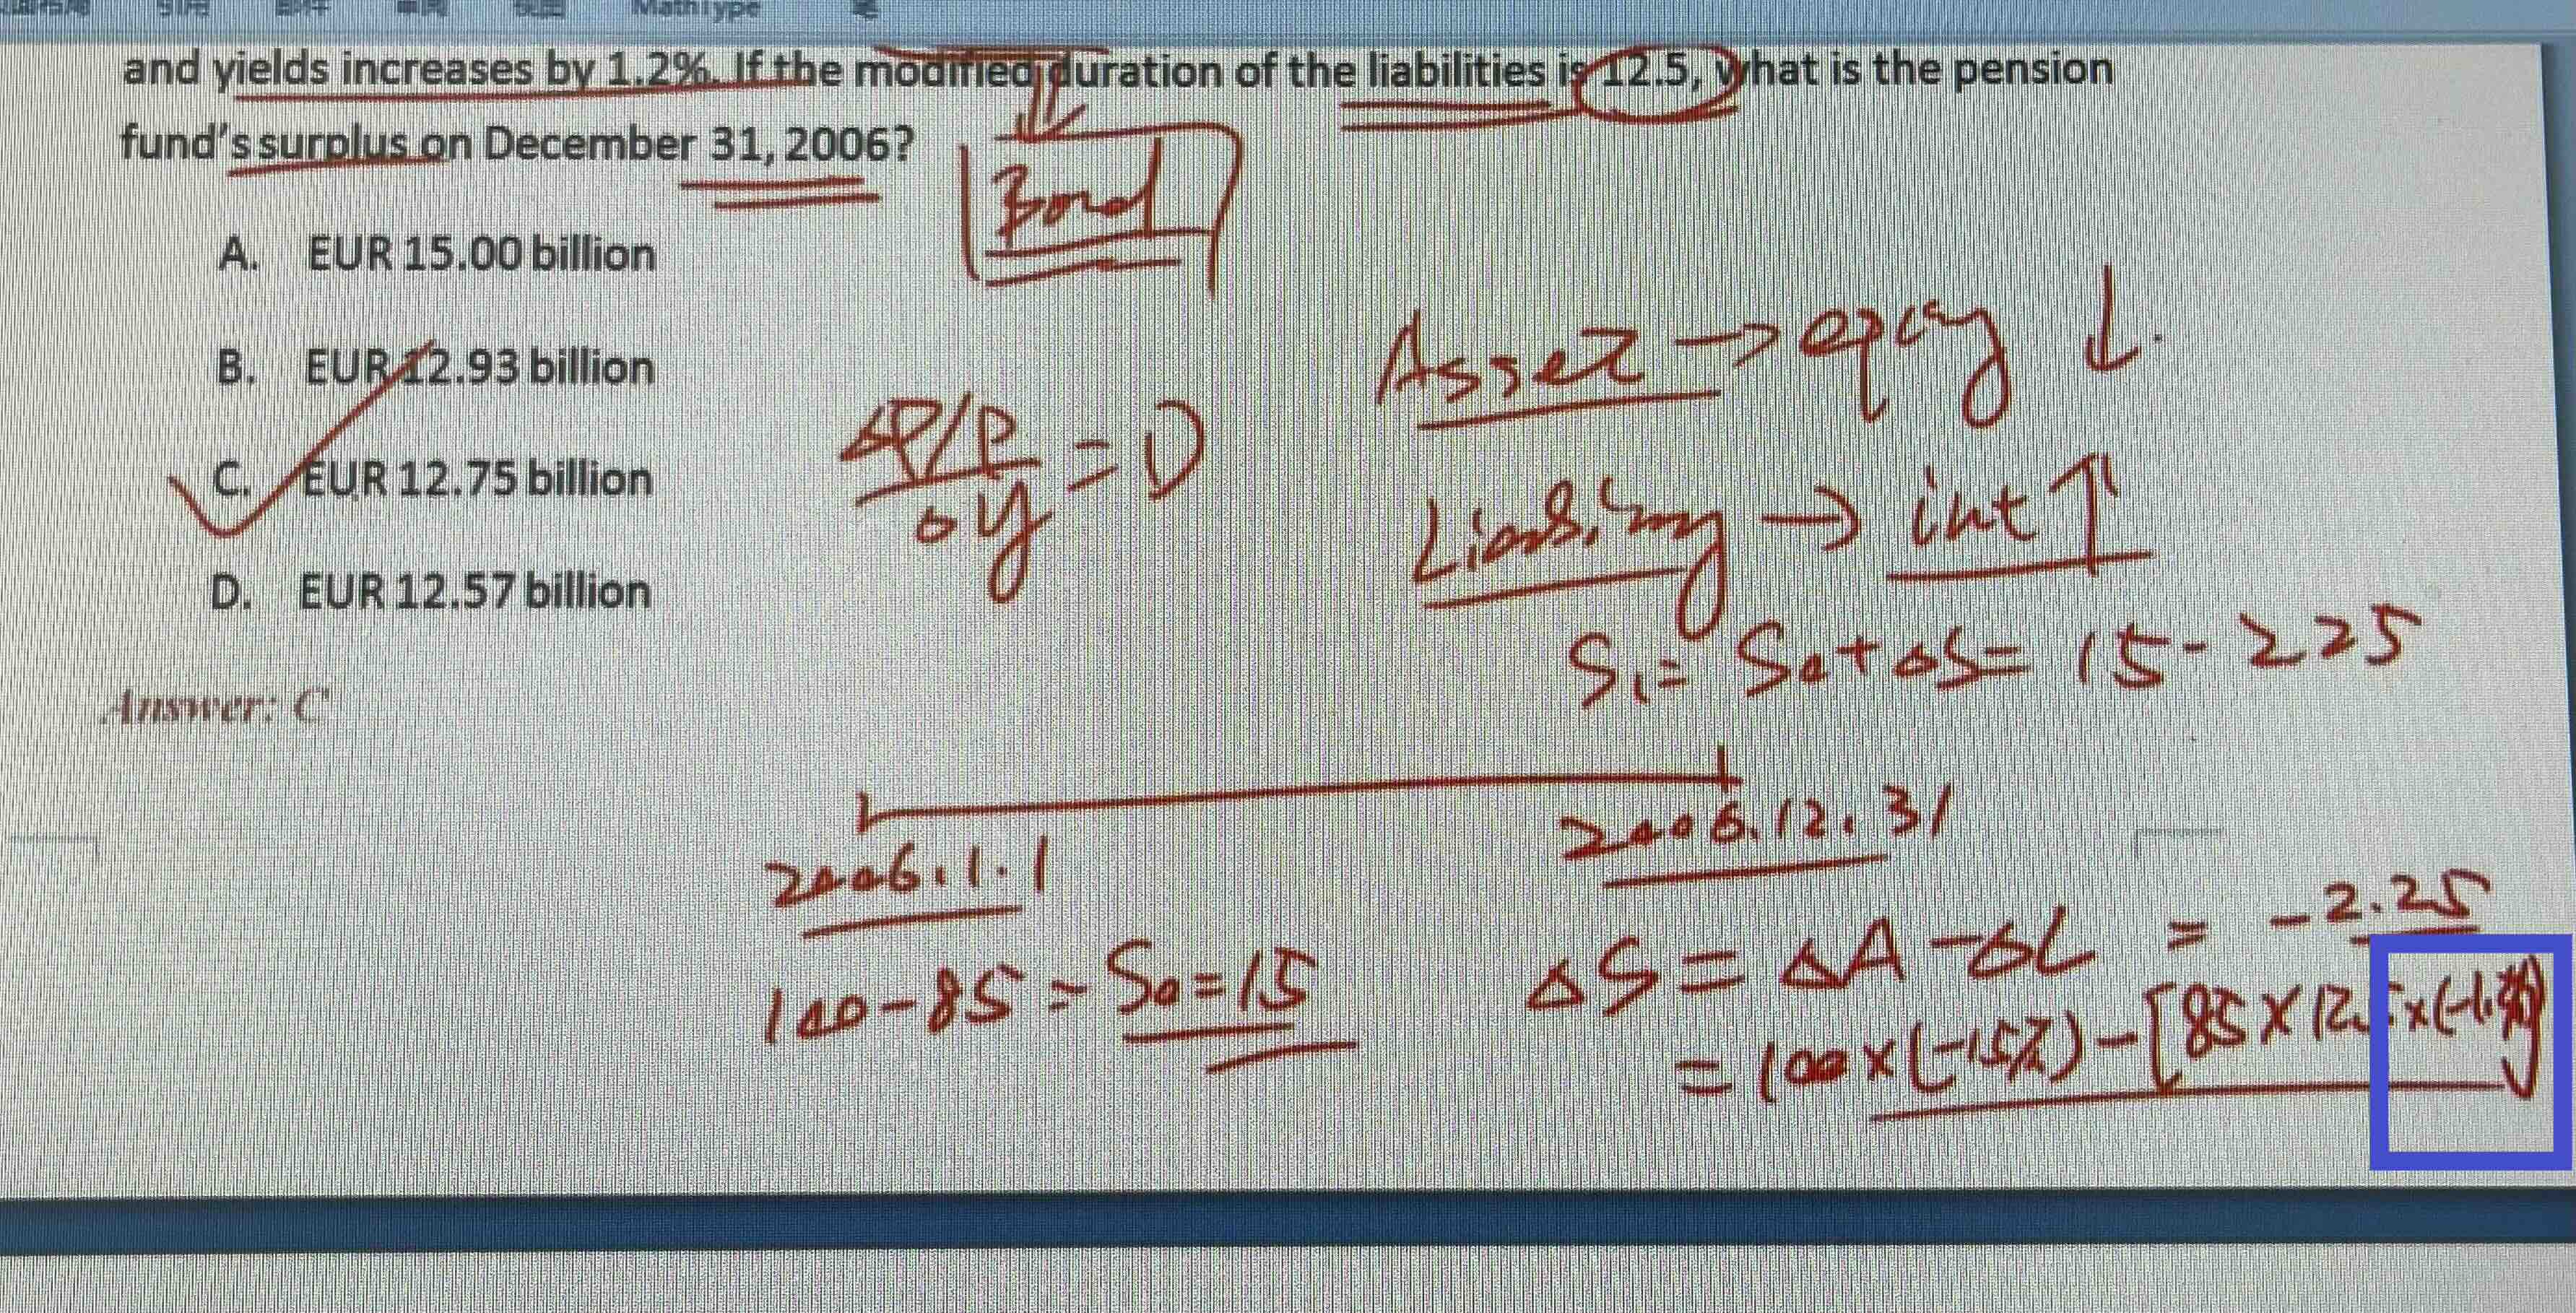 MathType
and yields increases by 1.2%. If the modified duration of the liabilities is 12.5, what is the pension
fund's surplus on December 31, 2006?
Bond
A. EUR 15.00 billion
B. EUR 12.93 billion
C. EUR 12.75 billion
D. EUR 12.57 billion
Answer: C
ΔP/P
Δy
= D
Asset → equity ↓
Liability → int ↑
S₁ = S₀ + ΔS = 15 - 2.25
2006.1.1
2006.12.31
100 - 85 = S₀ = 15
ΔS = ΔA - ΔL = -2.25
= 100 × (-15%) - [85 × 12.5 × (-1.2%)]